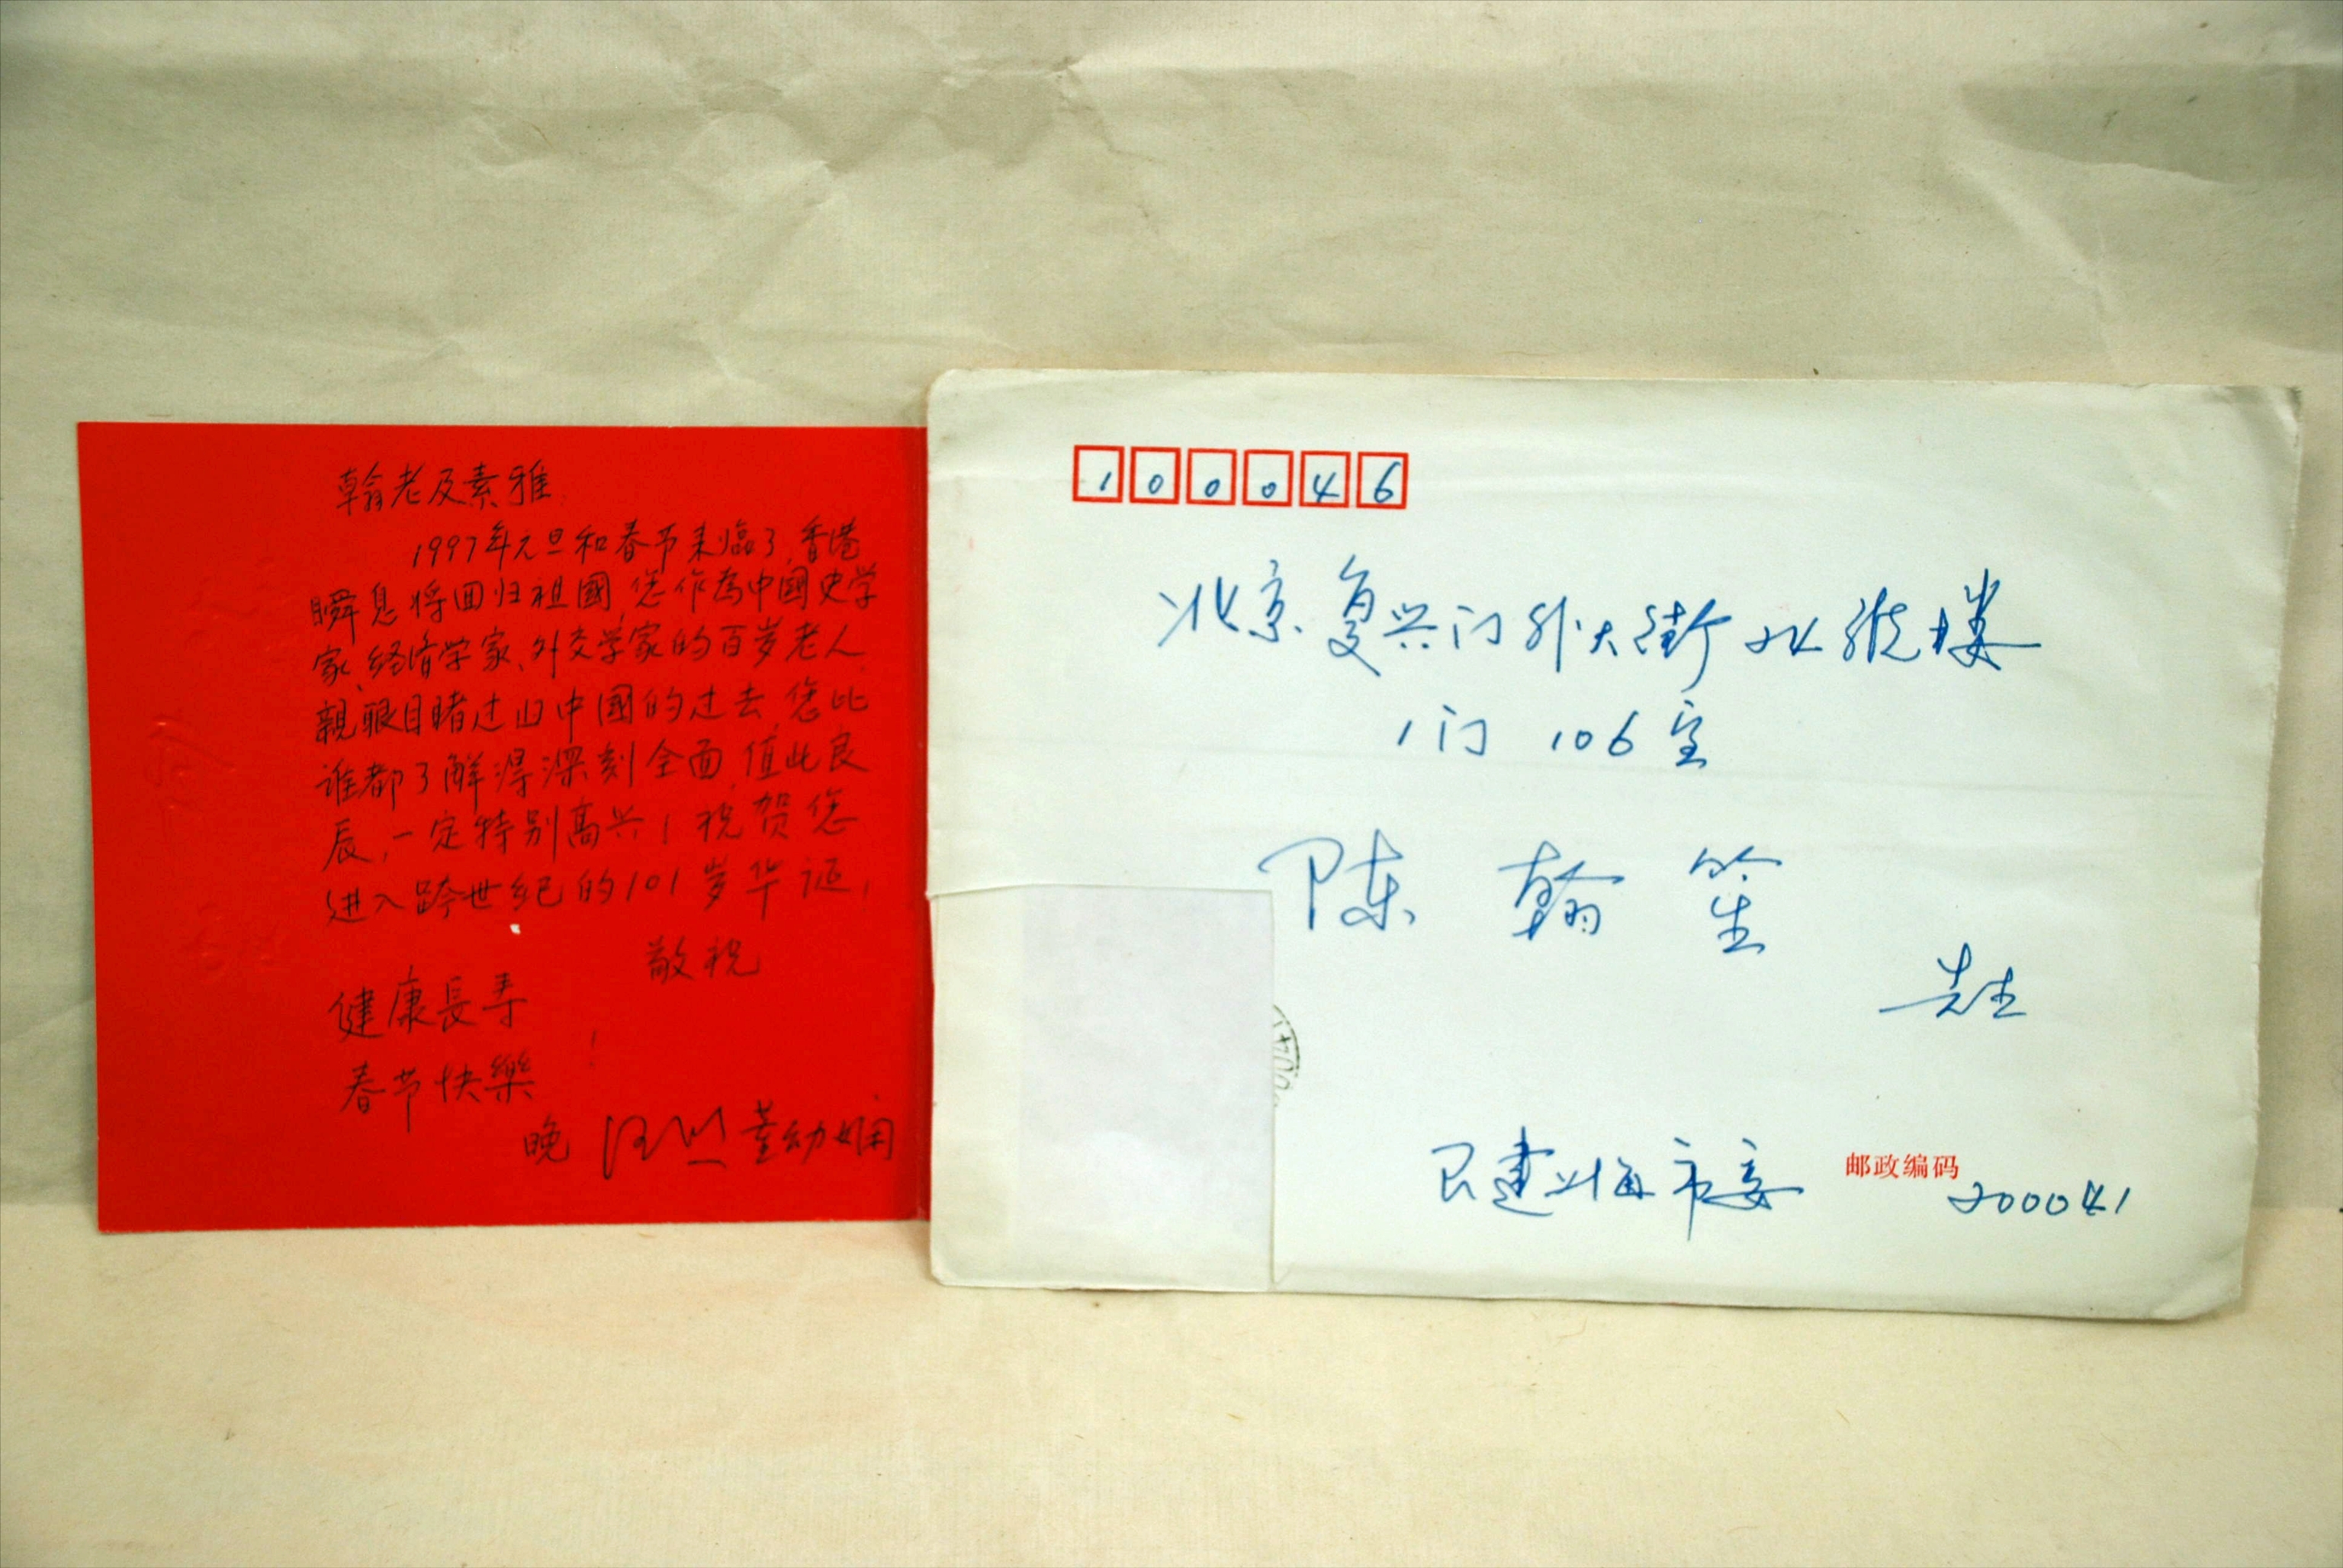 翰老及素雅
1997年元旦和春节来临了,香港
瞬息将回归祖國,您作為中國史学
家、经济学家、外交学家的百岁老人,
親眼目睹过旧中國的过去,您比
谁都了解得深刻全面,值此良
辰,一定特别高兴!祝贺您
进入跨世纪的101岁华诞,
敬祝
健康長寿
春节快樂!
晚 董幼娴
100046
北京复兴门外大街24号楼
1门 106室
陈翰笙
先生
民建上海市委
邮政编码 200041